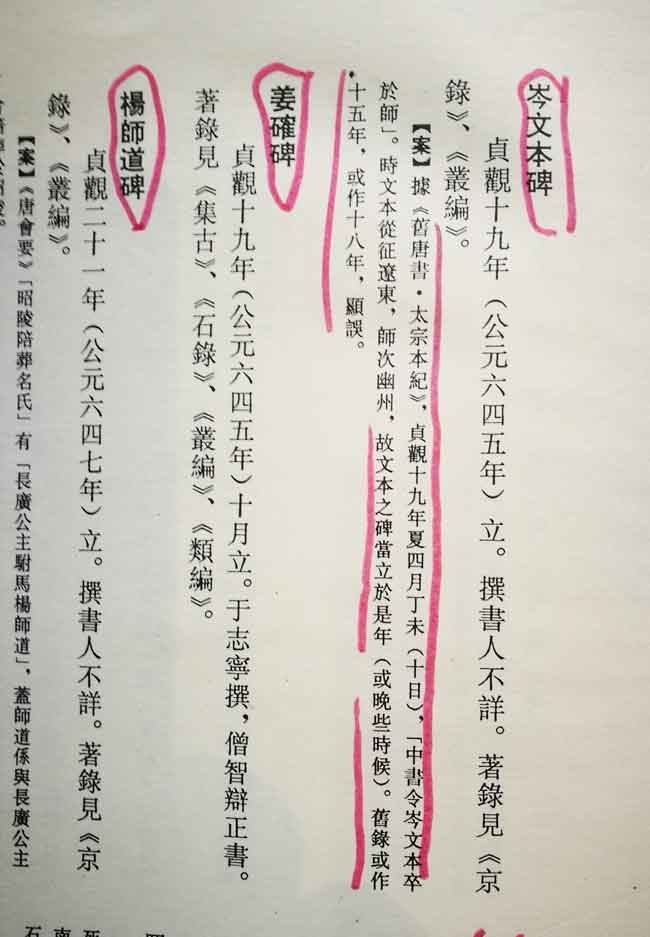 岑文本碑
貞觀十九年（公元六四五年）立。撰書人不詳。著錄見《京
錄》、《叢編》。
【案】據《舊唐書·太宗本紀》，貞觀十九年夏四月丁未（十日），「中書令岑文本卒
於師」。時文本從征遼東，師次幽州，故文本之碑當立於是年（或晚些時候）。舊錄或作
十五年，或作十八年，顯誤。
姜確碑
貞觀十九年（公元六四五年）十月立。于志寧撰，僧智辯正書。
著錄見《集古》、《石錄》、《叢編》、《類編》。
楊師道碑
貞觀二十一年（公元六四七年）立。撰書人不詳。著錄見《京
錄》、《叢編》。
【案】《唐會要》「昭陵陪葬名氏」有「長廣公主駙馬楊師道」，蓋師道係與長廣公主